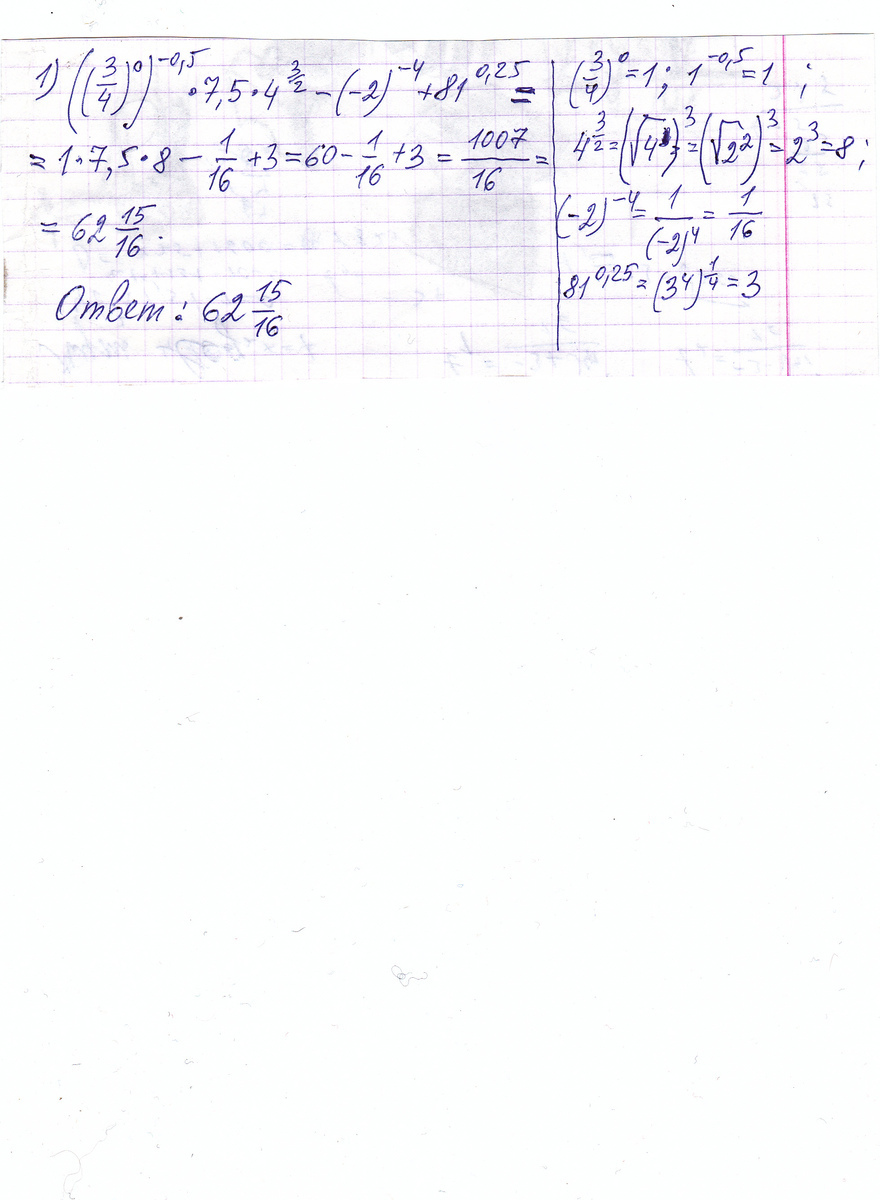 1) ((3/4)^0)^-0,5 · 7,5 · 4^3/2 - (-2)^-4 + 81^0,25 =
= 1 · 7,5 · 8 - 1/16 + 3 = 60 - 1/16 + 3 = 1007/16 =
= 62 15/16.
Ответ: 62 15/16
(3/4)^0 = 1; 1^-0,5 = 1 ;
4^3/2 = (√4)^3 = (√2^2)^3 = 2^3 = 8;
(-2)^-4 = 1/(-2)^4 = 1/16
81^0,25 = (3^4)^1/4 = 3